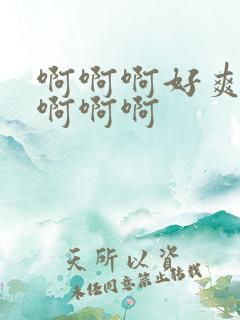 啊啊啊好爽
啊啊啊
天所以资
未经同意禁止转载